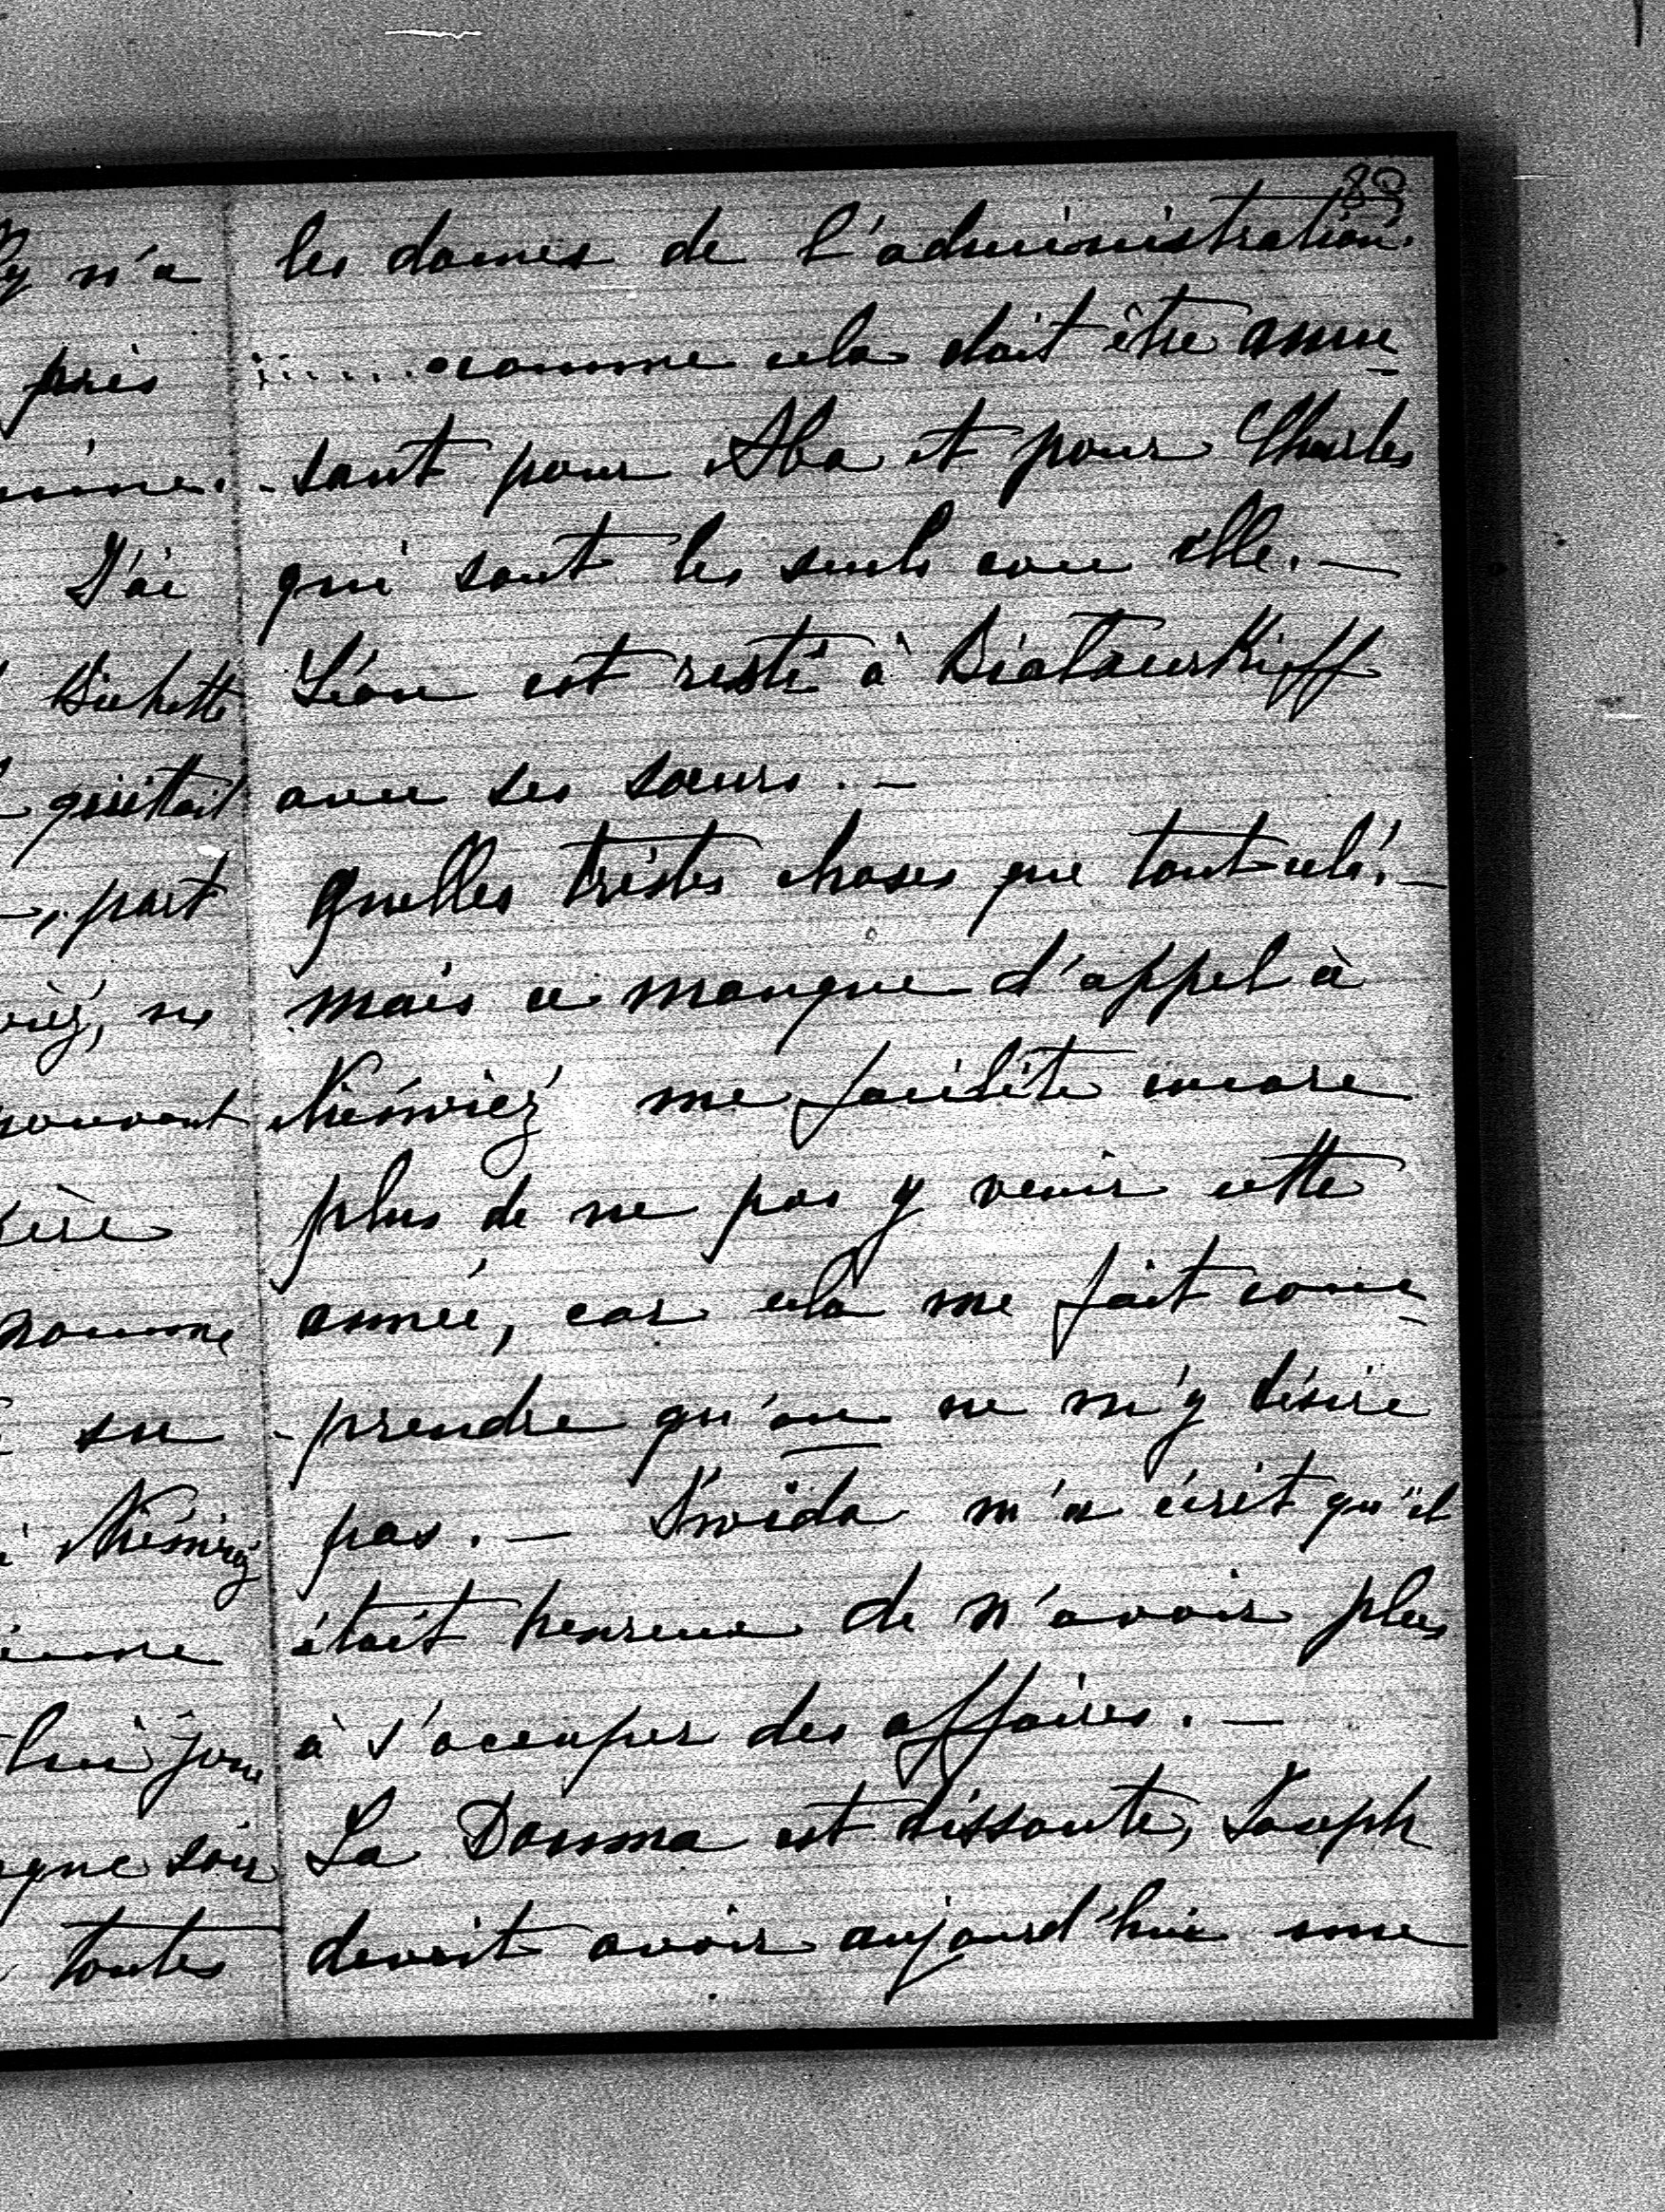 89
les dames de l'administration.
....... comme cela doit être amu
-sant pour Aba et pour Charles
qui sont les seuls avec elle. —
Léon est resté à
avec ses soeurs. —
Quelles tristes choses que tout cela! —
mais ce manque d'appel à
Nieśwież me facilite encore
plus de ne pas y venir cette
année, car cela me fait com-
-prendre qu'on ne m'y désire
pas. — m'a écrit qu'il
était heureux de n'avoir plus
à s'occuper des affaires. —
La Douma est dissoute, Joseph
devrit avoir aujourd'hui une
y n'a
près
J'ai
Bichette
quittait
part
ne
pouvant
su
Nieśwież
jour
soir
toutes